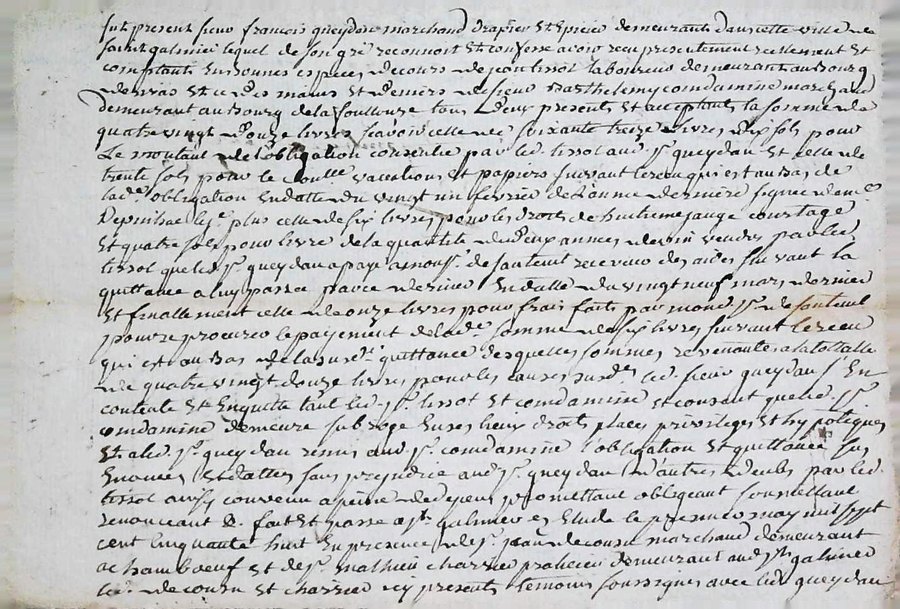 fut present sieur francois queydan marchand drapier et Epicié demeurant dans cette ville de
saint galmier lequel de son gré reconnoit et confesse avoir recu presentement reellement et
comptant en bonnes especes de cours de jean tissot laboureur demeurant au Bourg
de et ce des mains et deniers de sieur Barthelemy condamine marchand
demeurant au Bourg de la foullouze tous deux presents et acceptants la somme de
quatre vingt douze livres scavoir celle de soixante treize livres dix sols pour
Le montant de l'obligation consentie par led. tissot aud. sr. queydan et celle de
trente sols pour le conlle vacations et papiers suivant le recu qui est au bas de
lade. obligation en datte du vingt un fevrier de l'année derniere signée de me
Depinhac plus celle de six livres pour les droits de huitieme jauge courtage
et quatre sols pour livre de la quantité de deux années de vin vendus par led.
tissot que led. sr. queydan a payé a sr. de santeuil receveur des aides suivant la
quittance a luy passée par ce dernier en datte du vingt neuf mars dernier
et finallement celle de onze livres pour frais faits par mond. sr. de santeuil
pour se procurer le payement de lade. somme de six livres suivant le recu
qui est au bas de la susde. quittance desquelles sommes revenantes a la totalle
de quatre vingt douze livres pour les causes susdes. led. sieur queydan s'en
contente et en quitte tant led. sr. tissot et condamine et consent que led. sr.
condamine demeure subrogé en ses lieux droits places privileges et hypoteques
et a led. sr. queydan remis aud. sr. condamine l'obligation et quittance sus
Enoncées et dattées sans prejudice aud. sr. queydan d'autres deubs par led.
tissot ainsy convenu a peine de depens promettant obligeant soumettant
renonceant &. fait et passé a st. galmier es Etude le premier may mil sept
cent cinquante huit en presence de sr. jean de cousu marchand demeurant
a chambœuf et de sr. mathieu charrier praticien demeurant aud. st. galmier
led. de cousu et charrier icy presents temoins soussignés avec led. queydan